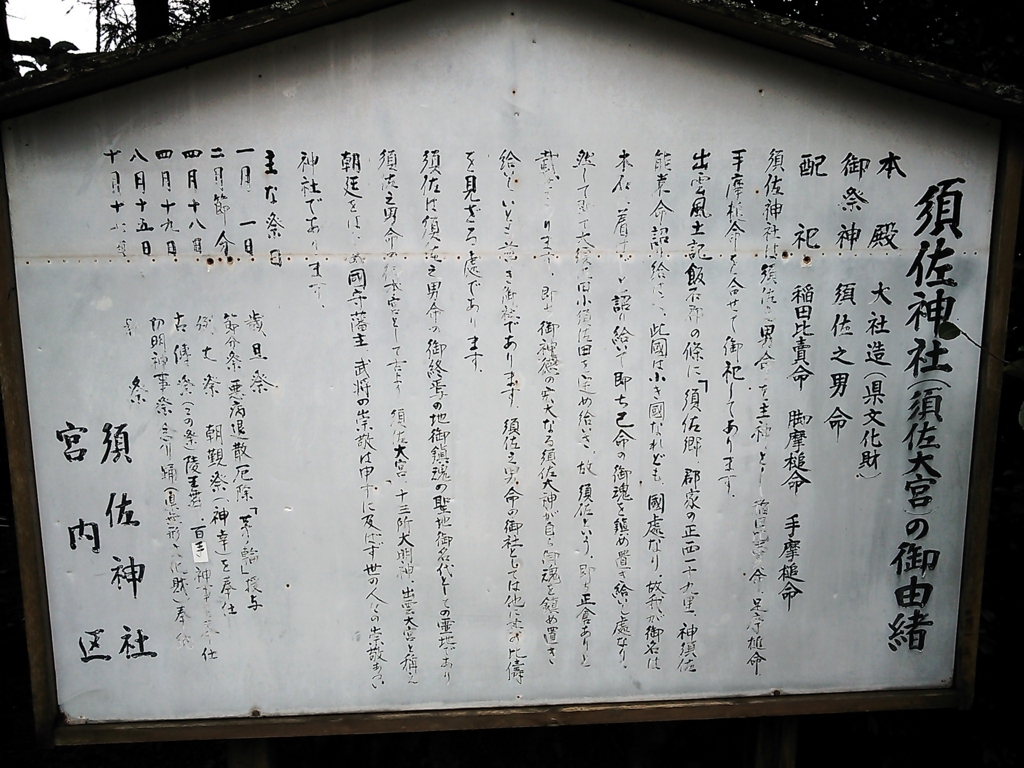 須佐神社（須佐大宮）の御由緒
本殿 大社造（県文化財）
御祭神 須佐之男命
配祀 稲田比賣命 脚摩槌命 手摩槌命
須佐神社は須佐之男命を主神とし 稲田比賣命 足摩槌命
手摩槌命を合せて御祀してあります。
出雲風土記飯石郡の條に「須佐郷 郡家の正西一十九里 神須佐
能袁命詔り給ひて、此國は小さき國なれども、國處なり 故我が御名は
木石に着けじと詔給ひて 即ち己命の御魂を鎮め置き給いし處なり
然して即ち大須佐田小須佐田を定め給いき、故 須佐という、即ち正倉ありと
載せてあります。即ち御神徳の宏大なる須佐大神が自ら御魂を鎮め置き
給いしいと尊き御社であります。須佐之男命の御社としては他に其の比儔
を見ざる處であります。
須佐は須佐之男命の御終焉の地御鎮魂の聖地御名代としての霊地であり
須佐之男命の御本宮として古より 須佐大宮、十三所大明神、出雲大宮と称え
朝廷をはじめ國守藩主 武将の崇敬は申すに及ばず世の人々の崇敬あつい
神社であります。
主な祭日
一月一日 歳旦祭
二月節分 節分祭 悪病退散厄除「茅の輪」授与
四月十八日 例大祭 朝覲祭（神幸）を奉仕
四月十九日 古傳祭（この祭）陵王舞、百手神事を奉仕
八月十五日 切明神事祭 念仏踊（県無形文化財）奉納
十月十七日 祭
須佐神社
宮内区